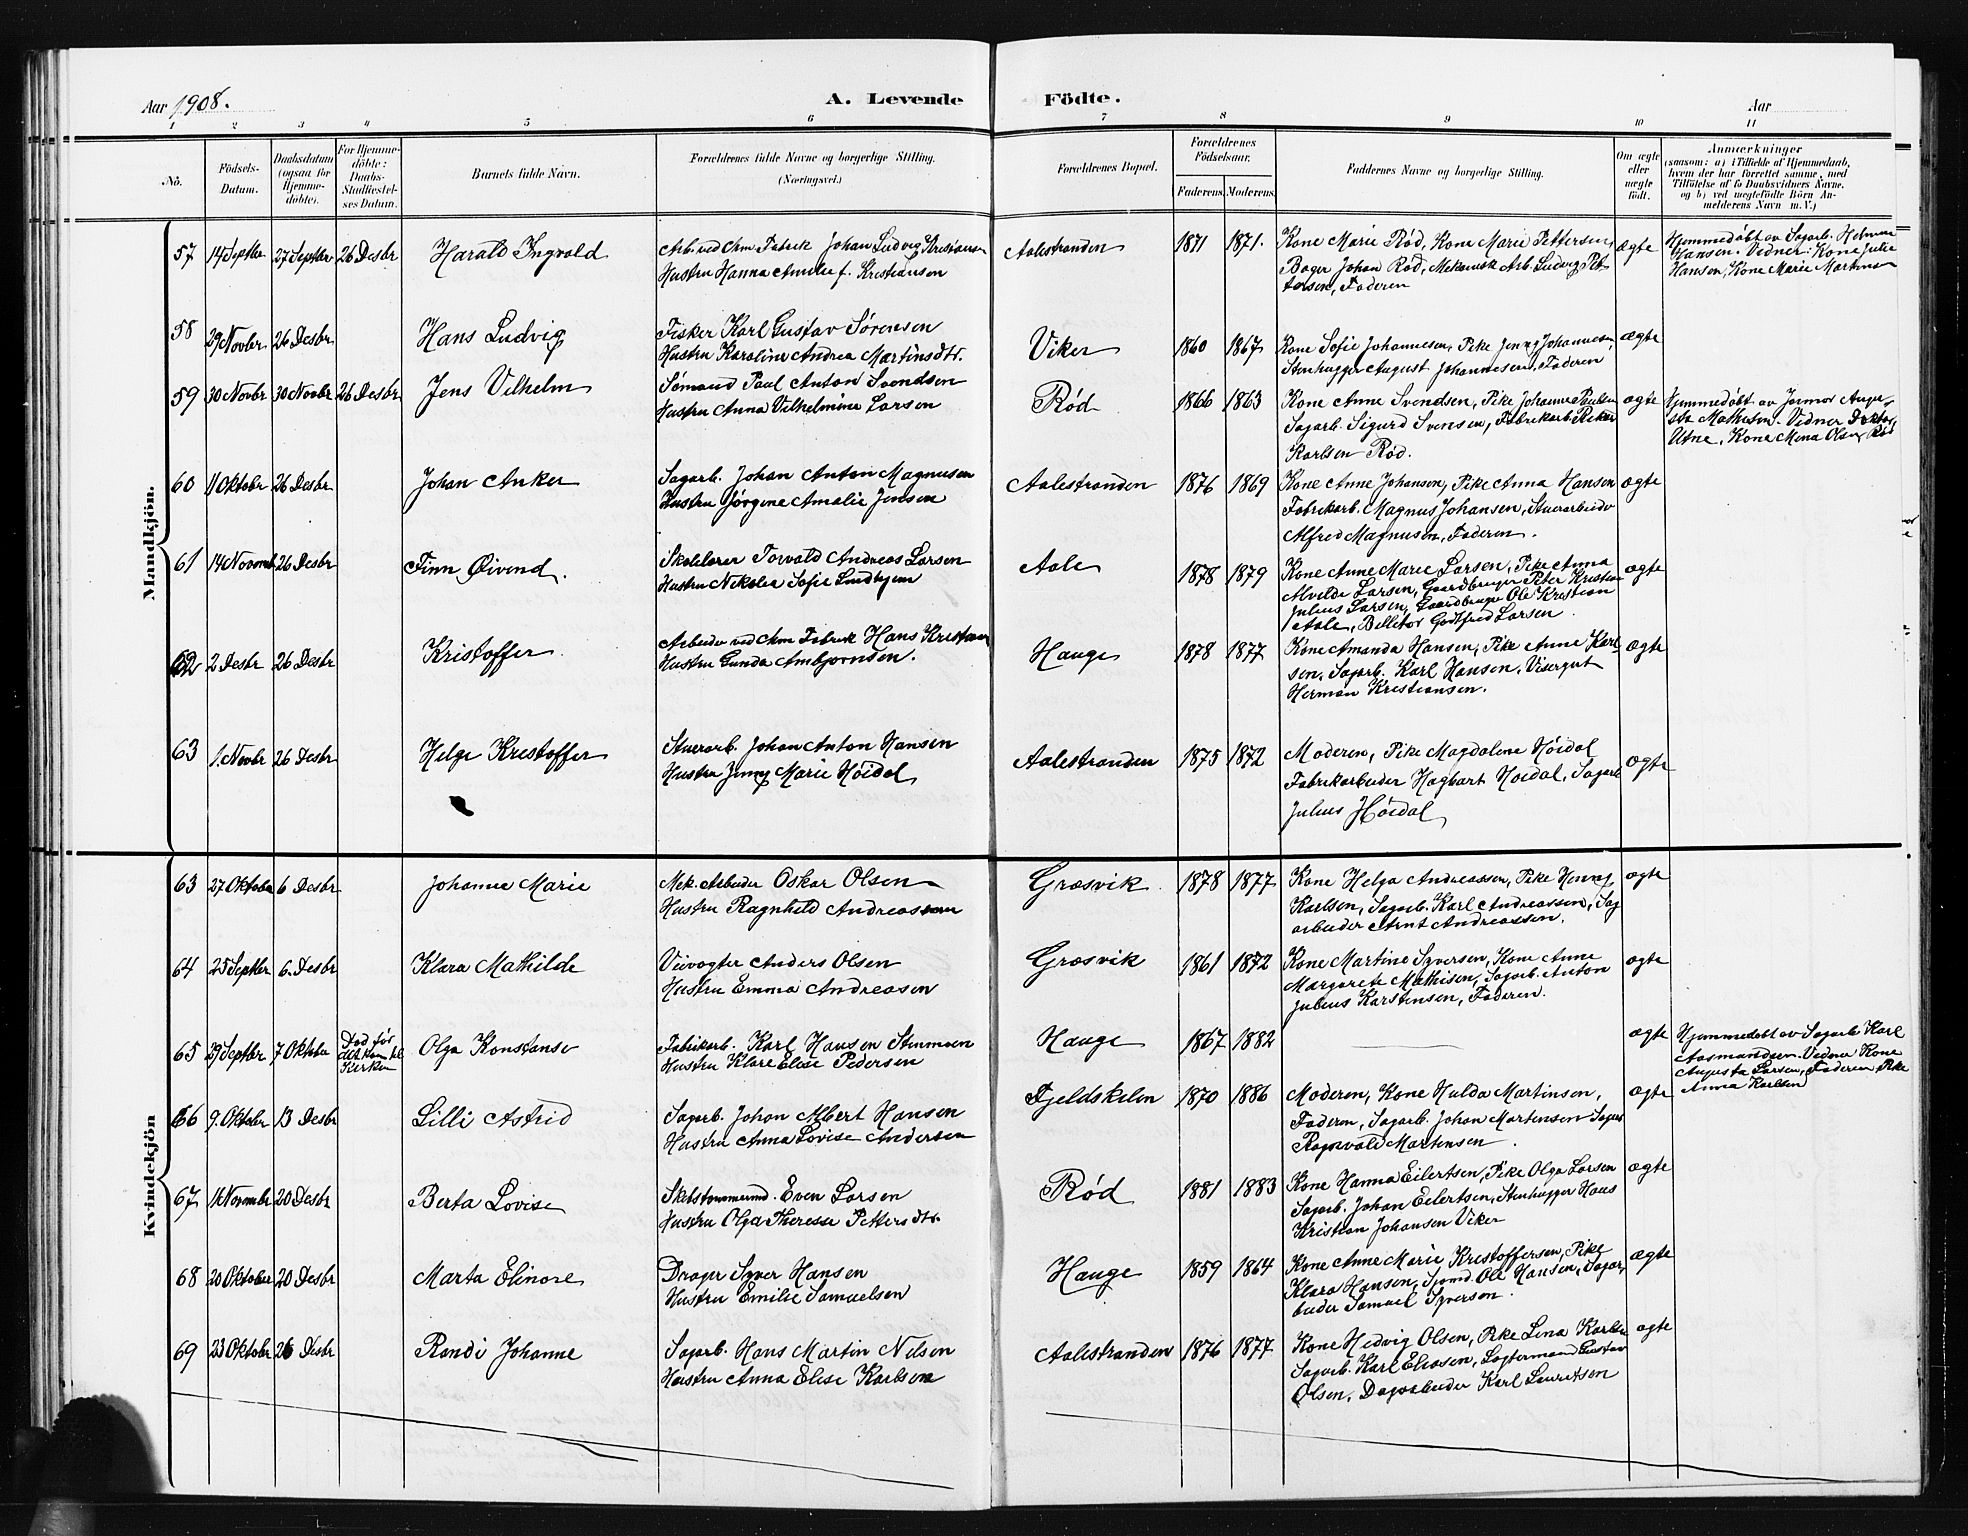 Aar 1908.
A. Levende Födte.
Aar
1 2 3 4 5 6 7 8 9 10 11
No.
Födsels-Datum.
Daabsdatum (ogsaa for Hjemmedöbte).
For Hjemmedöbte: Daabs-Stadfæstelses Datum.
Barnets fulde Navn.
Forældrenes fulde Navne og borgerlige Stilling. (Næringsvei.)
Forældrenes Bopæl.
Forældrenes Födselsaar.
Faderens. Moderens.
Faddernes Navne og borgerlige Stilling.
Om ægte eller uægte födt.
Anmærkninger
(saasom: a) i Tilfælde af Hjemmedaab, hvem der har forrettet samme, med Tilföielse af to Daabsvidners Navne, og b) ved uegtefödte Börn Anmelderens Navn m. V.)
Mandkjön.
57 14 Septbr 27 Septbr 26 Desbr Harald Ingvald
Arb. ved Am. Fabrik Johan Ludvig Kristiansen
Hustru Hanna Amilie f. Kristiansen
Aalestranden 1871 1871.
Kone Marie Rød, Kone Marie Pettersen,
Bager Johan Rød, Mekanisk Arb. Ludvig Pet
tersen, Faderen
ægte
Hjemmedøbt av Sagarb. Helmer
Hansen. Vidner: Kone Julie
Hansen, Kone Marie Martinsen
58 29 Novbr. 26 Desbr Hans Ludvig
Fisker Karl Gustav Sørensen
Hustru Karoline Andrea Martinsdtr.
Viker 1860 1867
Kone Sofie Johannesen, Pike Jenny Johannesen,
Stenhugger August Johannesen, Faderen
ægte
59 30 Novbr 30 Novbr 26 Desbr Jens Vilhelm
Sømand Paul Anton Svendsen
Hustru Anna Vilhelmine Larsen
Rød 1866 1863
Kone Anne Svendsen, Pike Johanne Paulsen
Sagarb. Sigurd Svensen, Fabrikarb. Peter
Karlsen Rød.
ægte
Hjemmedøbt av Jormor Augu-
sta Mathisen. Vidner Doktor
Utne, Kone Mina Olsen Rød
60 11 Oktobr 26 Desbr Johan Anker
Sagarb. Johan Anton Magnusen
Hustru Jørgine Amalie Jensen
Aalestranden 1876 1869
Kone Anne Johansen, Pike Anna Hansen
Fabrikarb. Magnus Johansen, Stuerarbeider
Alfred Magnusen, Faderen.
ægte
61 14 Novemb. 26 Desbr Finn Øivend.
Skolelærer Torvald Andreas Larsen
Hustru Nikolea Sofie Lundhjem
Aale 1878 1879
Kone Anne Marie Larsen, Pike Anna
Alvilde Larsen, Gaardbruger Peter Kristian
Julius Larsen, Gaardbruger Ole Kristian
Aale, Billetør Godtfred Larsen
ægte
62 2 Desbr 26 Desbr Kristoffer
Arbeider ved Am Fabrik Hans Kristiansen
Hustru Gunda Ambjørnsen.
Hauge 1878 1877
Kone Amanda Hansen, Pike Anne Karl-
sen, Sagarb. Karl Hansen, Visergut
Herman Kristiansen.
ægte
63 1. Novbr 26 Desbr Helge Kristoffer
Stuerarb. Johan Anton Hansen
Hustru Jenny Marie Høidal
Aalestranden 1875 1872
Moderen, Pike Magdalene Høidal
Fabrikarbeider Hagbart Høidal, Sagarb
Julius Høidal
ægte
Kvindekjön
63 27 Oktober 6 Desbr Johanne Marie
Mek. Arbeider Oskar Olsen
Hustru Ragnhild Andreassen
Græsvik 1878 1877
Kone Helga Andreassen, Pike Henny
Karlsen, Sagarb. Karl Andreassen, Sag
arbeider Arnt Andreassen.
ægte
64 25 Septbr 6. Desbr Klara Mathilde
Veivogter Anders Olsen
Hustru Emma Andreasen
Græsvik 1861 1872
Kone Martine Syversen, Kone Anne
Margarete Mathisen, Sagarb. Anton
Julius Karstensen, Faderen.
ægte
65 29 Septbr 7 Oktober
Død før
det kom til
Kirken
Olga Konstanse
Fabrikarb. Karl Hansen Stenmoen
Hustru Klara Elise Pedersen
Hauge 1867 1882
ægte
Hjemmedøbt av Sagarb. Karl
Aasmandsen. Vidner Kone
Augusta Larsen, Faderen Pike
Anna Karlsen
66 9. Oktober 13 Desbr Lilli Astrid
Sagarb. Johan Albert Hansen
Hustru Anna Lovise Andersen
Fjeldskelen 1870 1886
Moderen, Kone Hulda Martinsen,
Faderen, Sagarb. Johan Martensen Sagarb
Ragnvald Martensen.
ægte
67 11 Novmbr 20 Desbr Berta Lovise
Skibstømmermd. Even Larsen
Hustru Olga Therese Pettersdtr.
Rød 1881 1883
Kone Hanna Eilertsen, Pike Olga Larsen
Sagarb. Johan Eilertsen, Stenhugger Hans
Kristian Johansen Viker
ægte
68 20 Oktober 20 Desbr Marta Elinore
Drager Syver Hansen
Hustru Emilie Samuelsen
Hauge 1859 1864
Kone Anne Marie Kristoffersen, Pike
Klara Hansen, Sjømd. Ole Hansen, Sagar-
beider Samuel Syversen.
ægte
69 23 Oktober 26 Desbr Randi Johanne
Sagarb. Hans Martin Nilsen
Hustru Anna Elise Karlsen
Aalestranden 1876 1877
Kone Hedvig Olsen, Pike Lina Karlsen
Sagarb. Karl Eliasen, Lagtermand Gustav
Olsen, Dagarbeider Karl Lauritsen
ægte